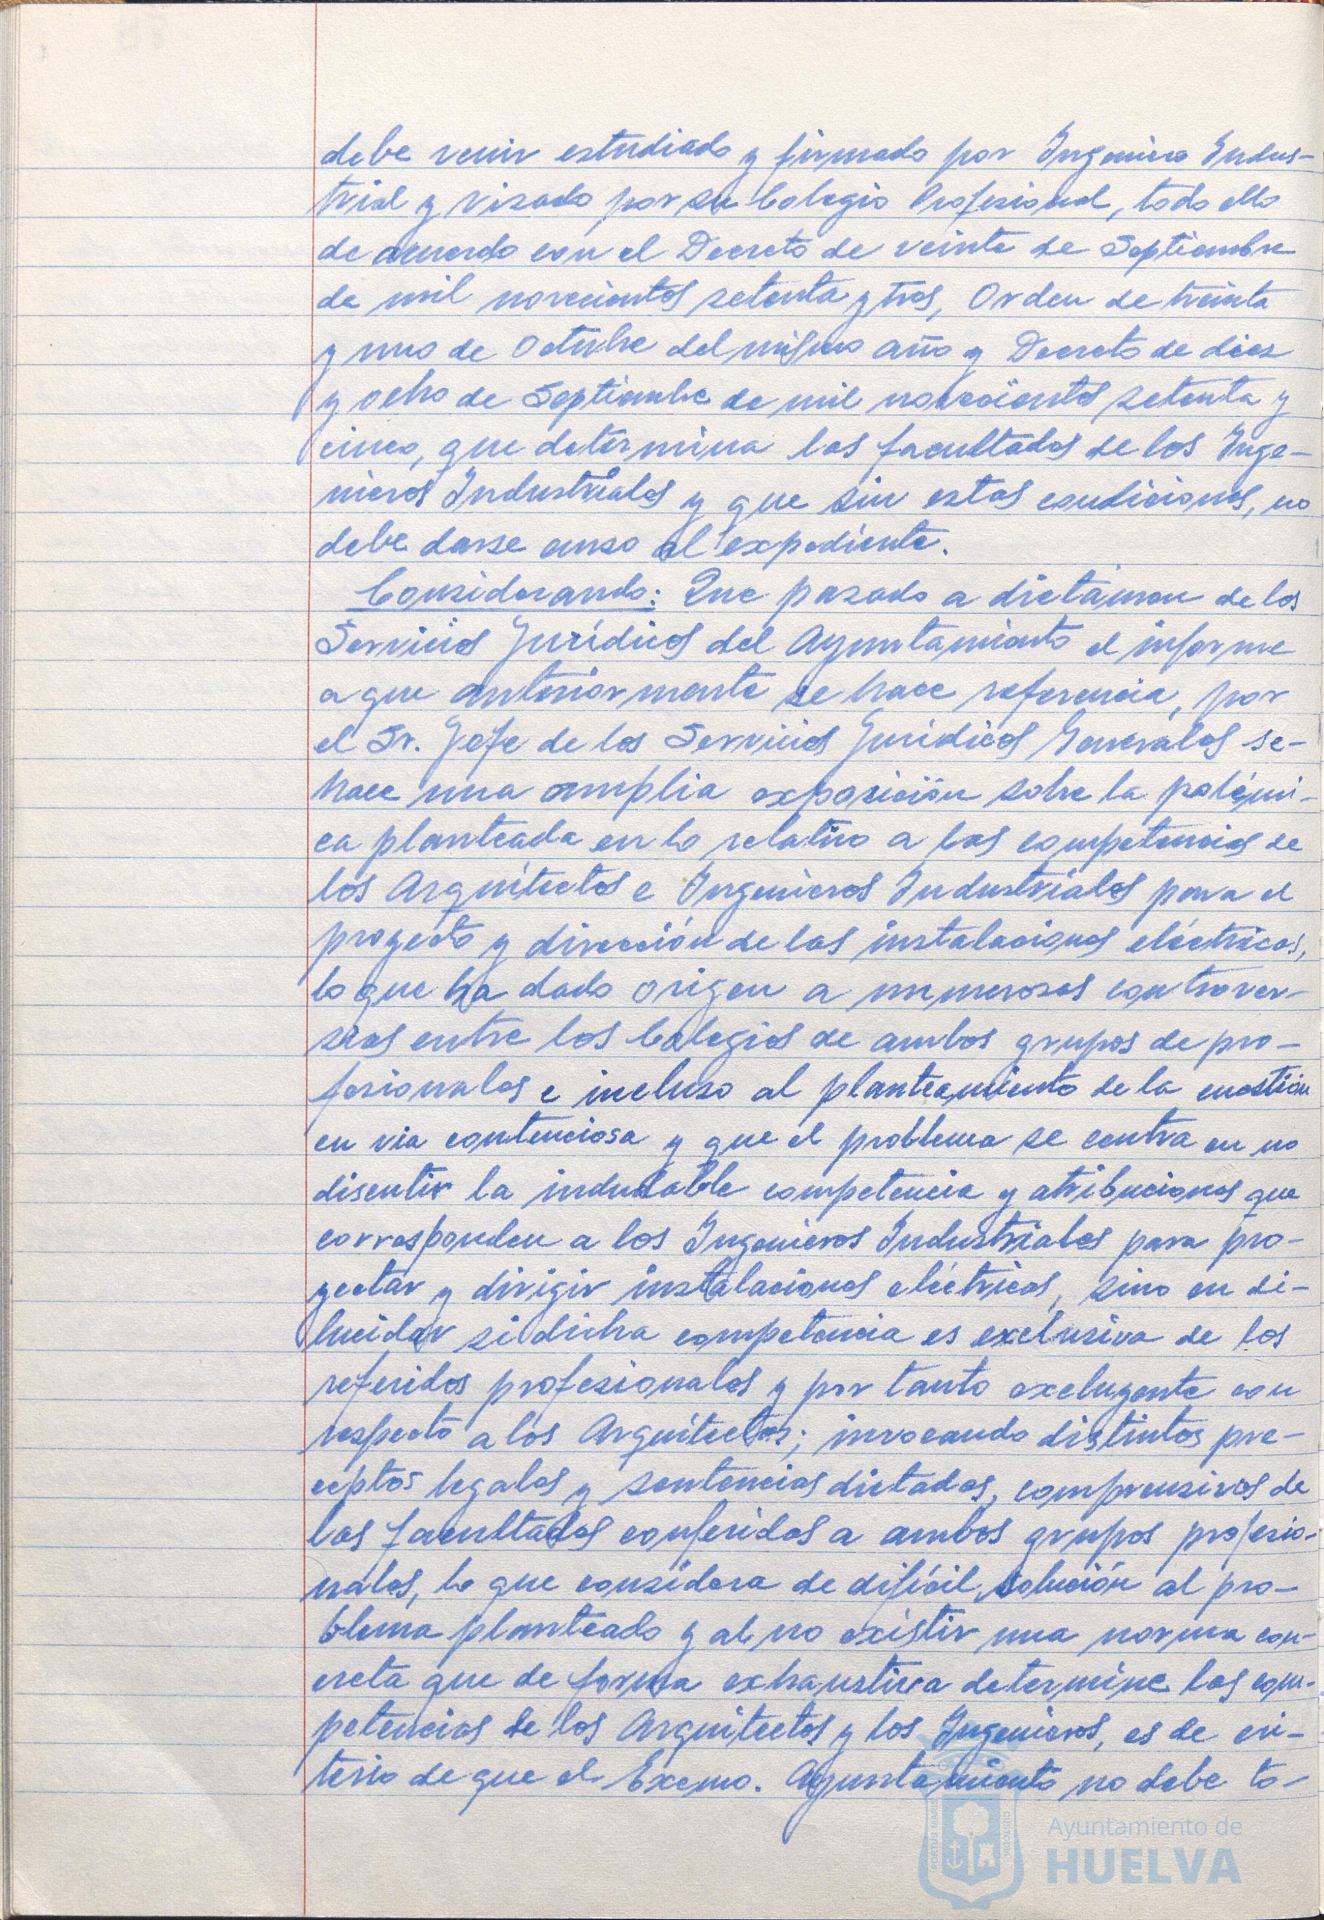 debe venir estudiado y firmado por Ingeniero Indus-
trial y visado por su Colegio Profesional, todo ello
de acuerdo con el Decreto de veinte de Septiembre
de mil novecientos setenta y tres, Orden de treinta
y uno de Octubre del mismo año y Decreto de diez
y ocho de Septiembre de mil novecientos setenta y
cinco, que determina las facultades de los Inge-
nieros Industriales y que sin estas condiciones, no
debe darse curso al expediente.
Considerando: Que pasado a dictamen de los
Servicios Jurídicos del Ayuntamiento el informe
a que anteriormente se hace referencia, por
el Sr. Jefe de los Servicios Jurídicos Generales se-
hace una amplia exposición sobre la polémi-
ca planteada en lo relativo a las competencias de
los Arquitectos e Ingenieros Industriales para el
proyecto y dirección de las instalaciones eléctricas,
lo que ha dado origen a numerosas controver-
sias entre los Colegios de ambos grupos de pro-
fesionales e incluso al planteamiento de la cuestión
en via contenciosa y que el problema se centra en no
discutir la indudable competencia y atribuciones que
corresponden a los Ingenieros Industriales para pro-
yectar y dirigir instalaciones eléctricas, sino en di-
lucidar si dicha competencia es exclusiva de los
referidos profesionales y por tanto excluyente con
respecto a los Arquitectos; invocando distintos pre-
ceptos legales y sentencias dictadas, comprensivos de
las facultades conferidas a ambos grupos profesio-
nales, lo que considera de difícil solución al pro-
blema planteado y al no existir una norma con-
creta que de forma exhaustiva determine las com-
petencias de los Arquitectos y los Ingenieros, es de cri-
terio de que el Excmo. Ayuntamiento no debe to-
Ayuntamiento de
HUELVA